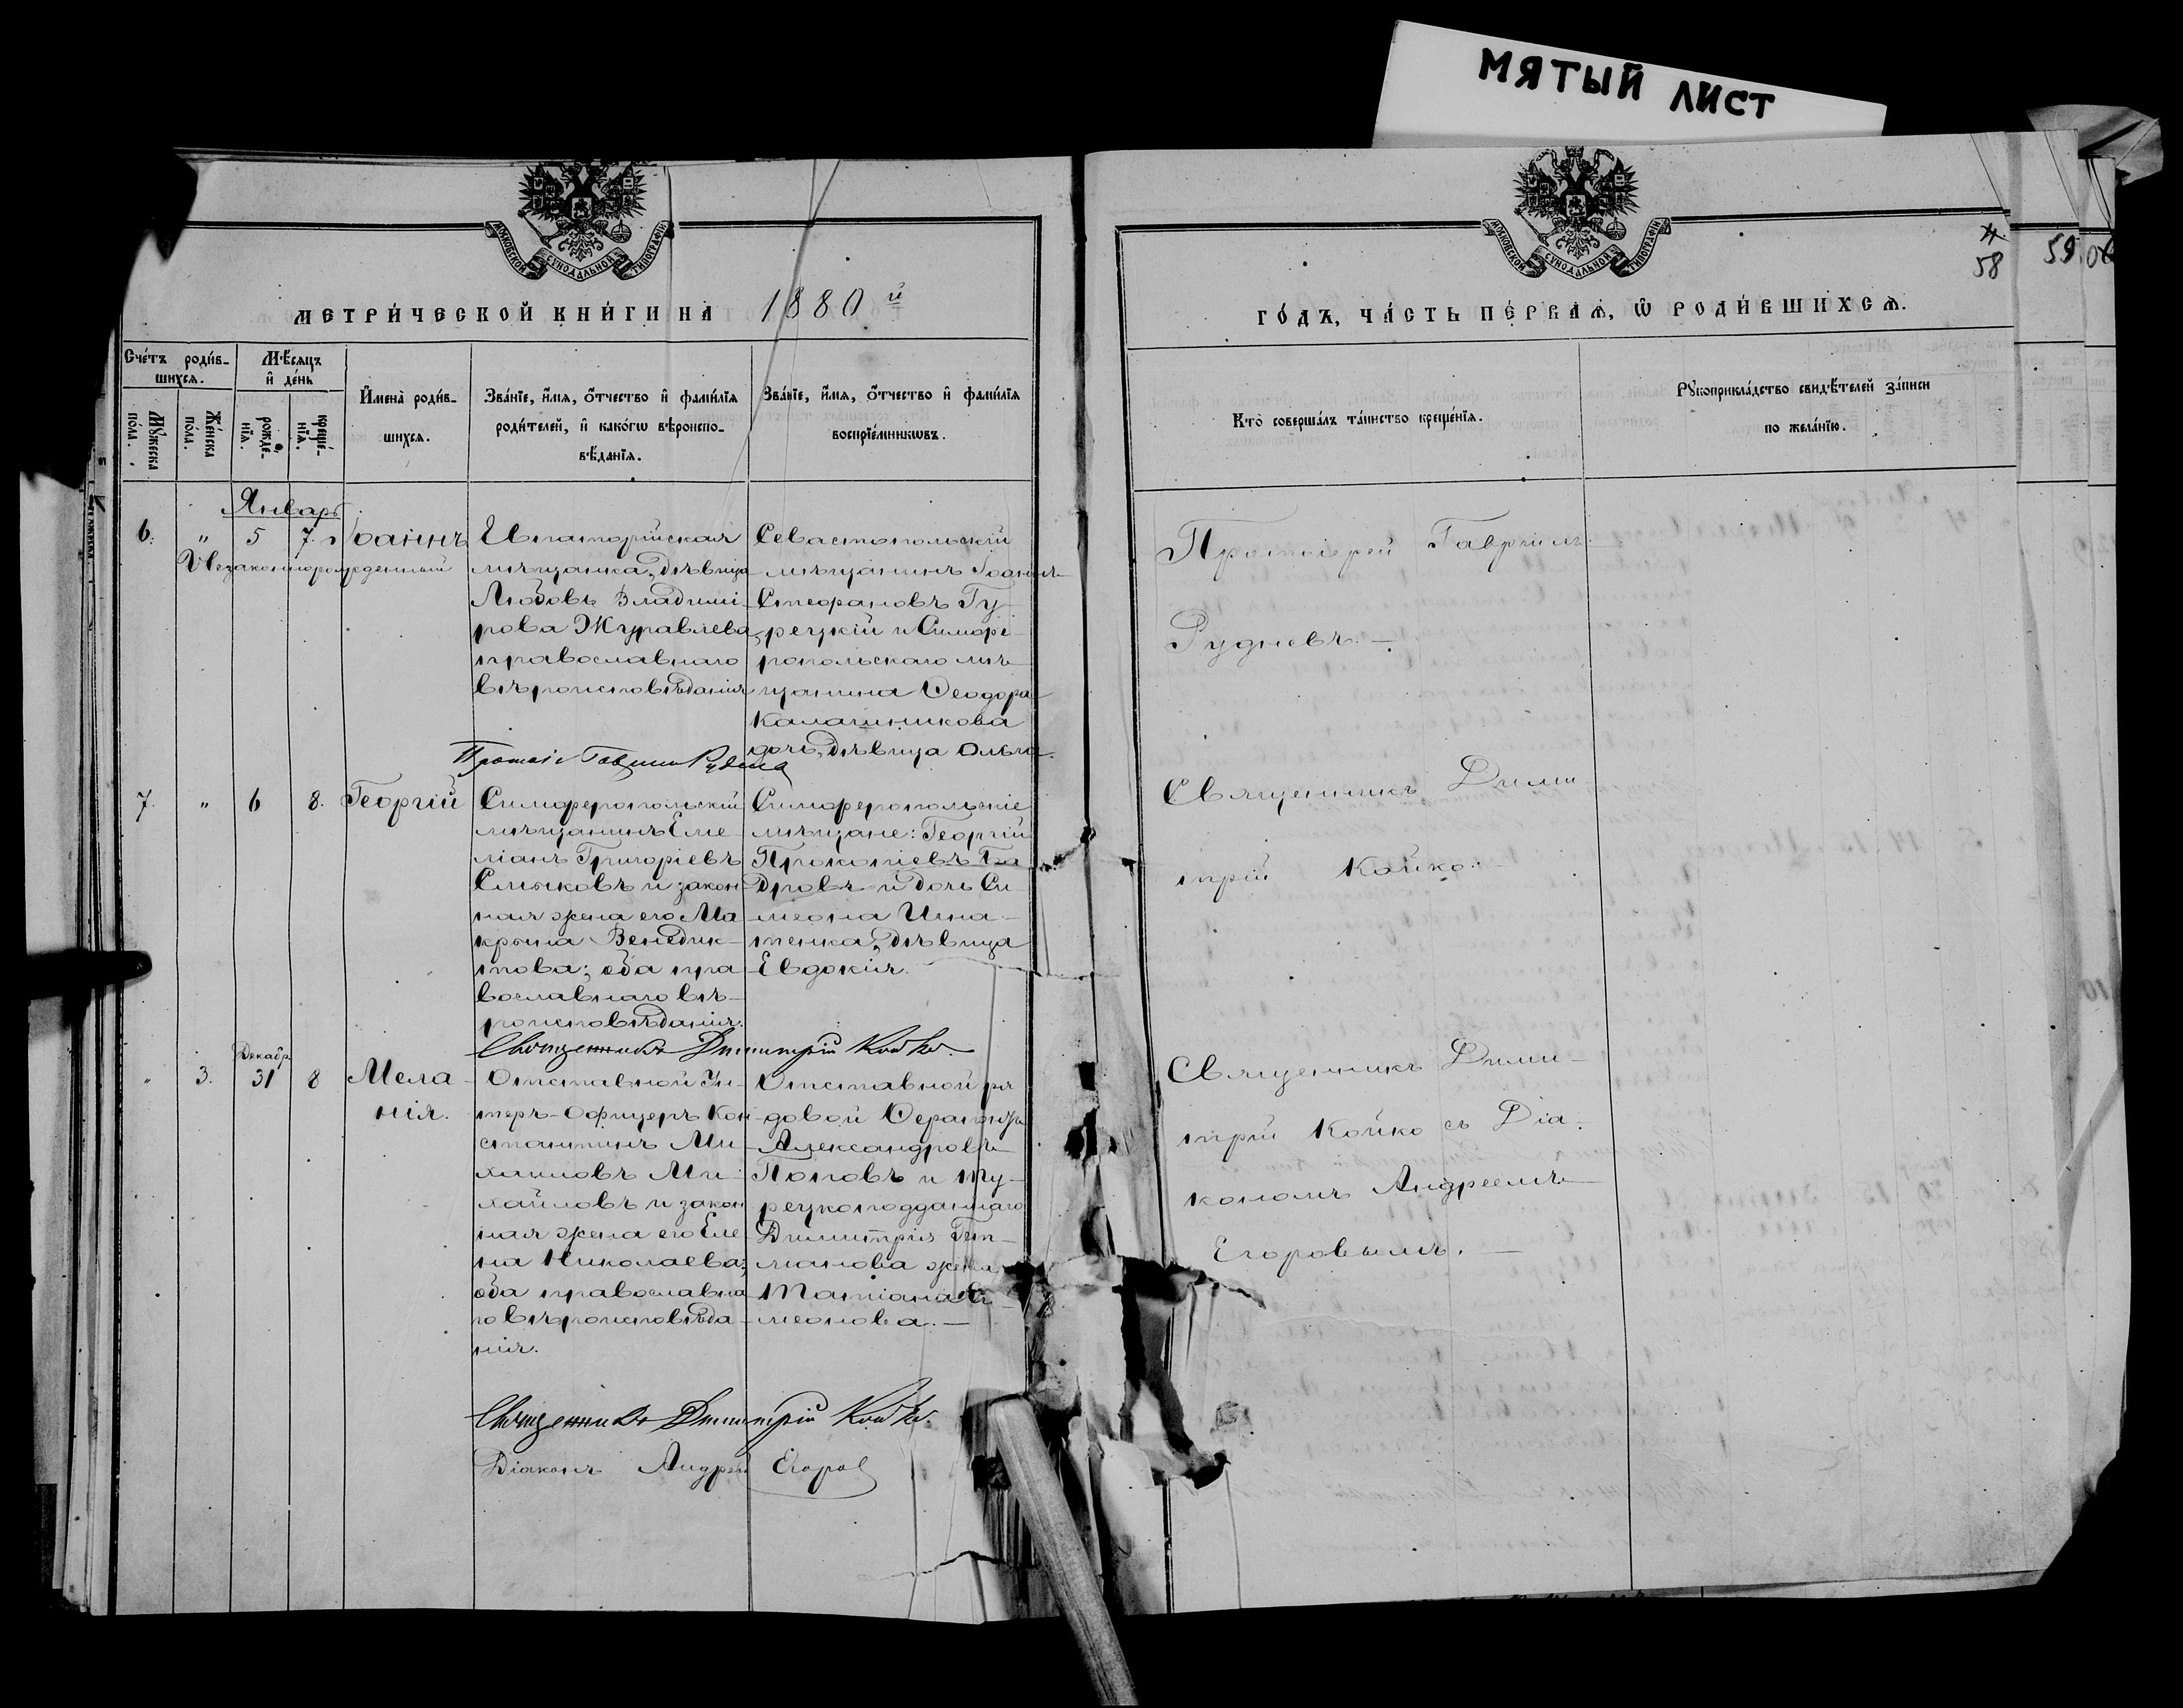 МЯТЫЙ ЛИСТ
МОСКОВСКОЙ СѴНОДАЛЬНОЙ ТИПОГРАФІИ
МОСКОВСКОЙ СѴНОДАЛЬНОЙ ТИПОГРАФІИ
58
59
МЕТРИ́ЧЕСКОЙ КНИ́ГИ НА 1880 й
ГО́ДЪ, ЧА́СТЬ ПЕ́РВАѦ, Ѡ РОДИ́ВШИХСѦ.
Сче́тъ роди́в-
шихсѧ.
Мꙋ́жеска по́ла.
Же́нска по́ла.
Мѣ́сѧцъ
и҆ де́нь
рожде́-
нїѧ.
креще́-
нїѧ.
И҆мена̀ роди́в-
шихсѧ.
Зва́нїе, и҆́мѧ, ѻ҆́тчество и҆ фами́лїѧ
роди́телей, и҆ како́гѡ вѣроиспо-
вѣ́данїѧ.
Зва́нїе, и҆́мѧ, ѻ҆́тчество и҆ фами́лїѧ
воспрїе́мникѡвъ.
Кто̀ соверша́лъ та́инство креще́нїѧ.
Рꙋкоприкла́дство свидѣ́телей за́писи
по жела́нїю.
Январь
6. " 5 7. Іоаннъ
Незаконнорожденный
Евпаторійская
мѣщанка, дѣвица
Любовь Владимі-
рова Журавлева,
православнаго
вѣроисповѣданія
Севастопольскій
мѣщанинъ Іоаннъ
Стефановъ Гу-
рецкій и Симфе-
ропольскаго мѣ-
щанина Ѳеодора
Калашникова
дочь, дѣвица Ольга.
Протоіерей Гавріилъ
Рудневъ.—
7. " 6 8. Георгій
Симферопольскій
мѣщанинъ Еме-
ліанъ Григоріевъ
Смыковъ и закон-
ная жена его Ма-
крина Венедик-
това; оба пра-
вославнаго вѣ-
роисповѣданія.
Симферопольскіе
мѣщане: Георгій
Прокопіевъ
и дочь Си-
меона Игна-
тенка, дѣвица
Евдокія.
Священникъ Дими-
трій Койко.
Священникъ Димитрій Койко.
Декабр.
" 3. 31 8 Мела-
нія.
Отставной Ун-
теръ-Офицеръ Кон-
стантинъ Ми-
хаиловъ Ми-
хайловъ и закон-
ная жена его Еле-
на Николаева;
оба православна-
го вѣроисповѣда-
нія.
Отставной ря-
довой
Александровъ
Поповъ и ту-
рецкоподданнаго
Димитрія
жена
Татіана Си-
меонова.—
Священникъ Дими-
трій Койко съ Діа-
кономъ Андреемъ
Егоровымъ.—
Священникъ Димитрій Койко.
Діаконъ Андрей Егоров